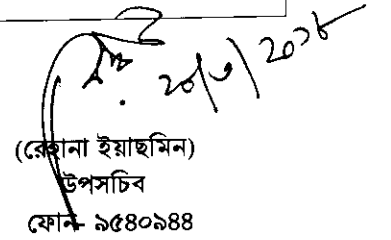 ২০/৩/২০১৮
(রেহানা ইয়াছমিন)
উপসচিব
ফোন- ৯৫৪০৯৪৪